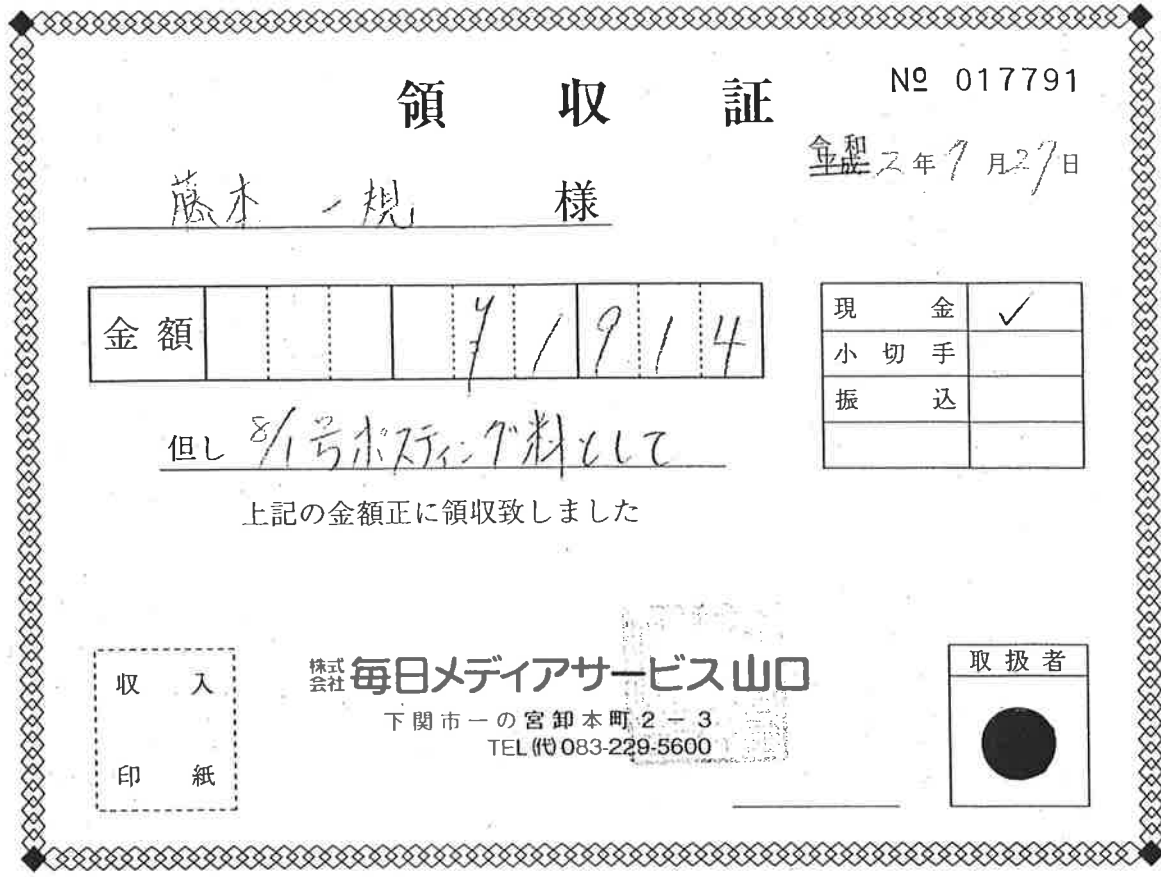 領収証
№ 017791
令和
平成 2年7月27日
藤本 一規 様
金額 ¥1914
現金 ✓
小切手
振込
但し 8/1号ポスティング料として
上記の金額正に領収致しました
収入
印紙
株式会社 毎日メディアサービス山口
下関市一の宮卸本町2-3
TEL(代)083-229-5600
取扱者